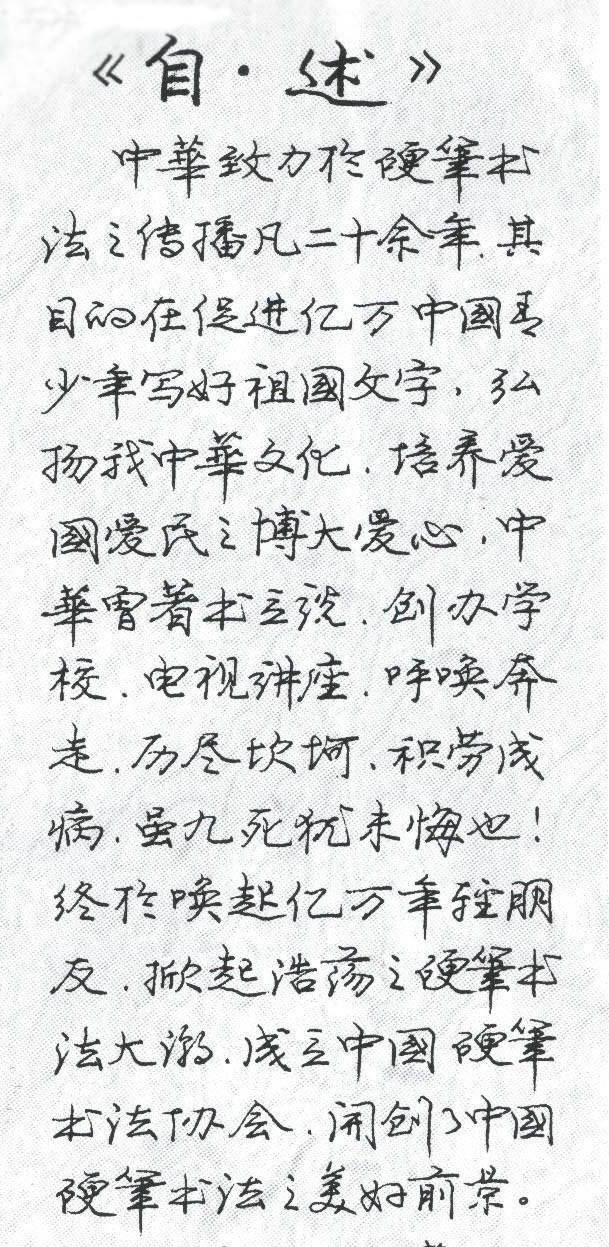 《自·述》
中華致力於硬筆书
法之传播凡二十余年.其
目的在促进亿万中國青
少年写好祖國文字,弘
扬我中華文化.培养爱
國爱民之博大爱心,中
華曾著书立说.创办学
校.电视讲座.呼唤奔
走.历尽坎坷、积劳成
病.虽九死犹未悔也!
终於唤起亿万年轻朋
友.掀起浩荡之硬筆书
法大潮.成立中國硬筆
书法协会.開创了中國
硬筆书法之美好前景。